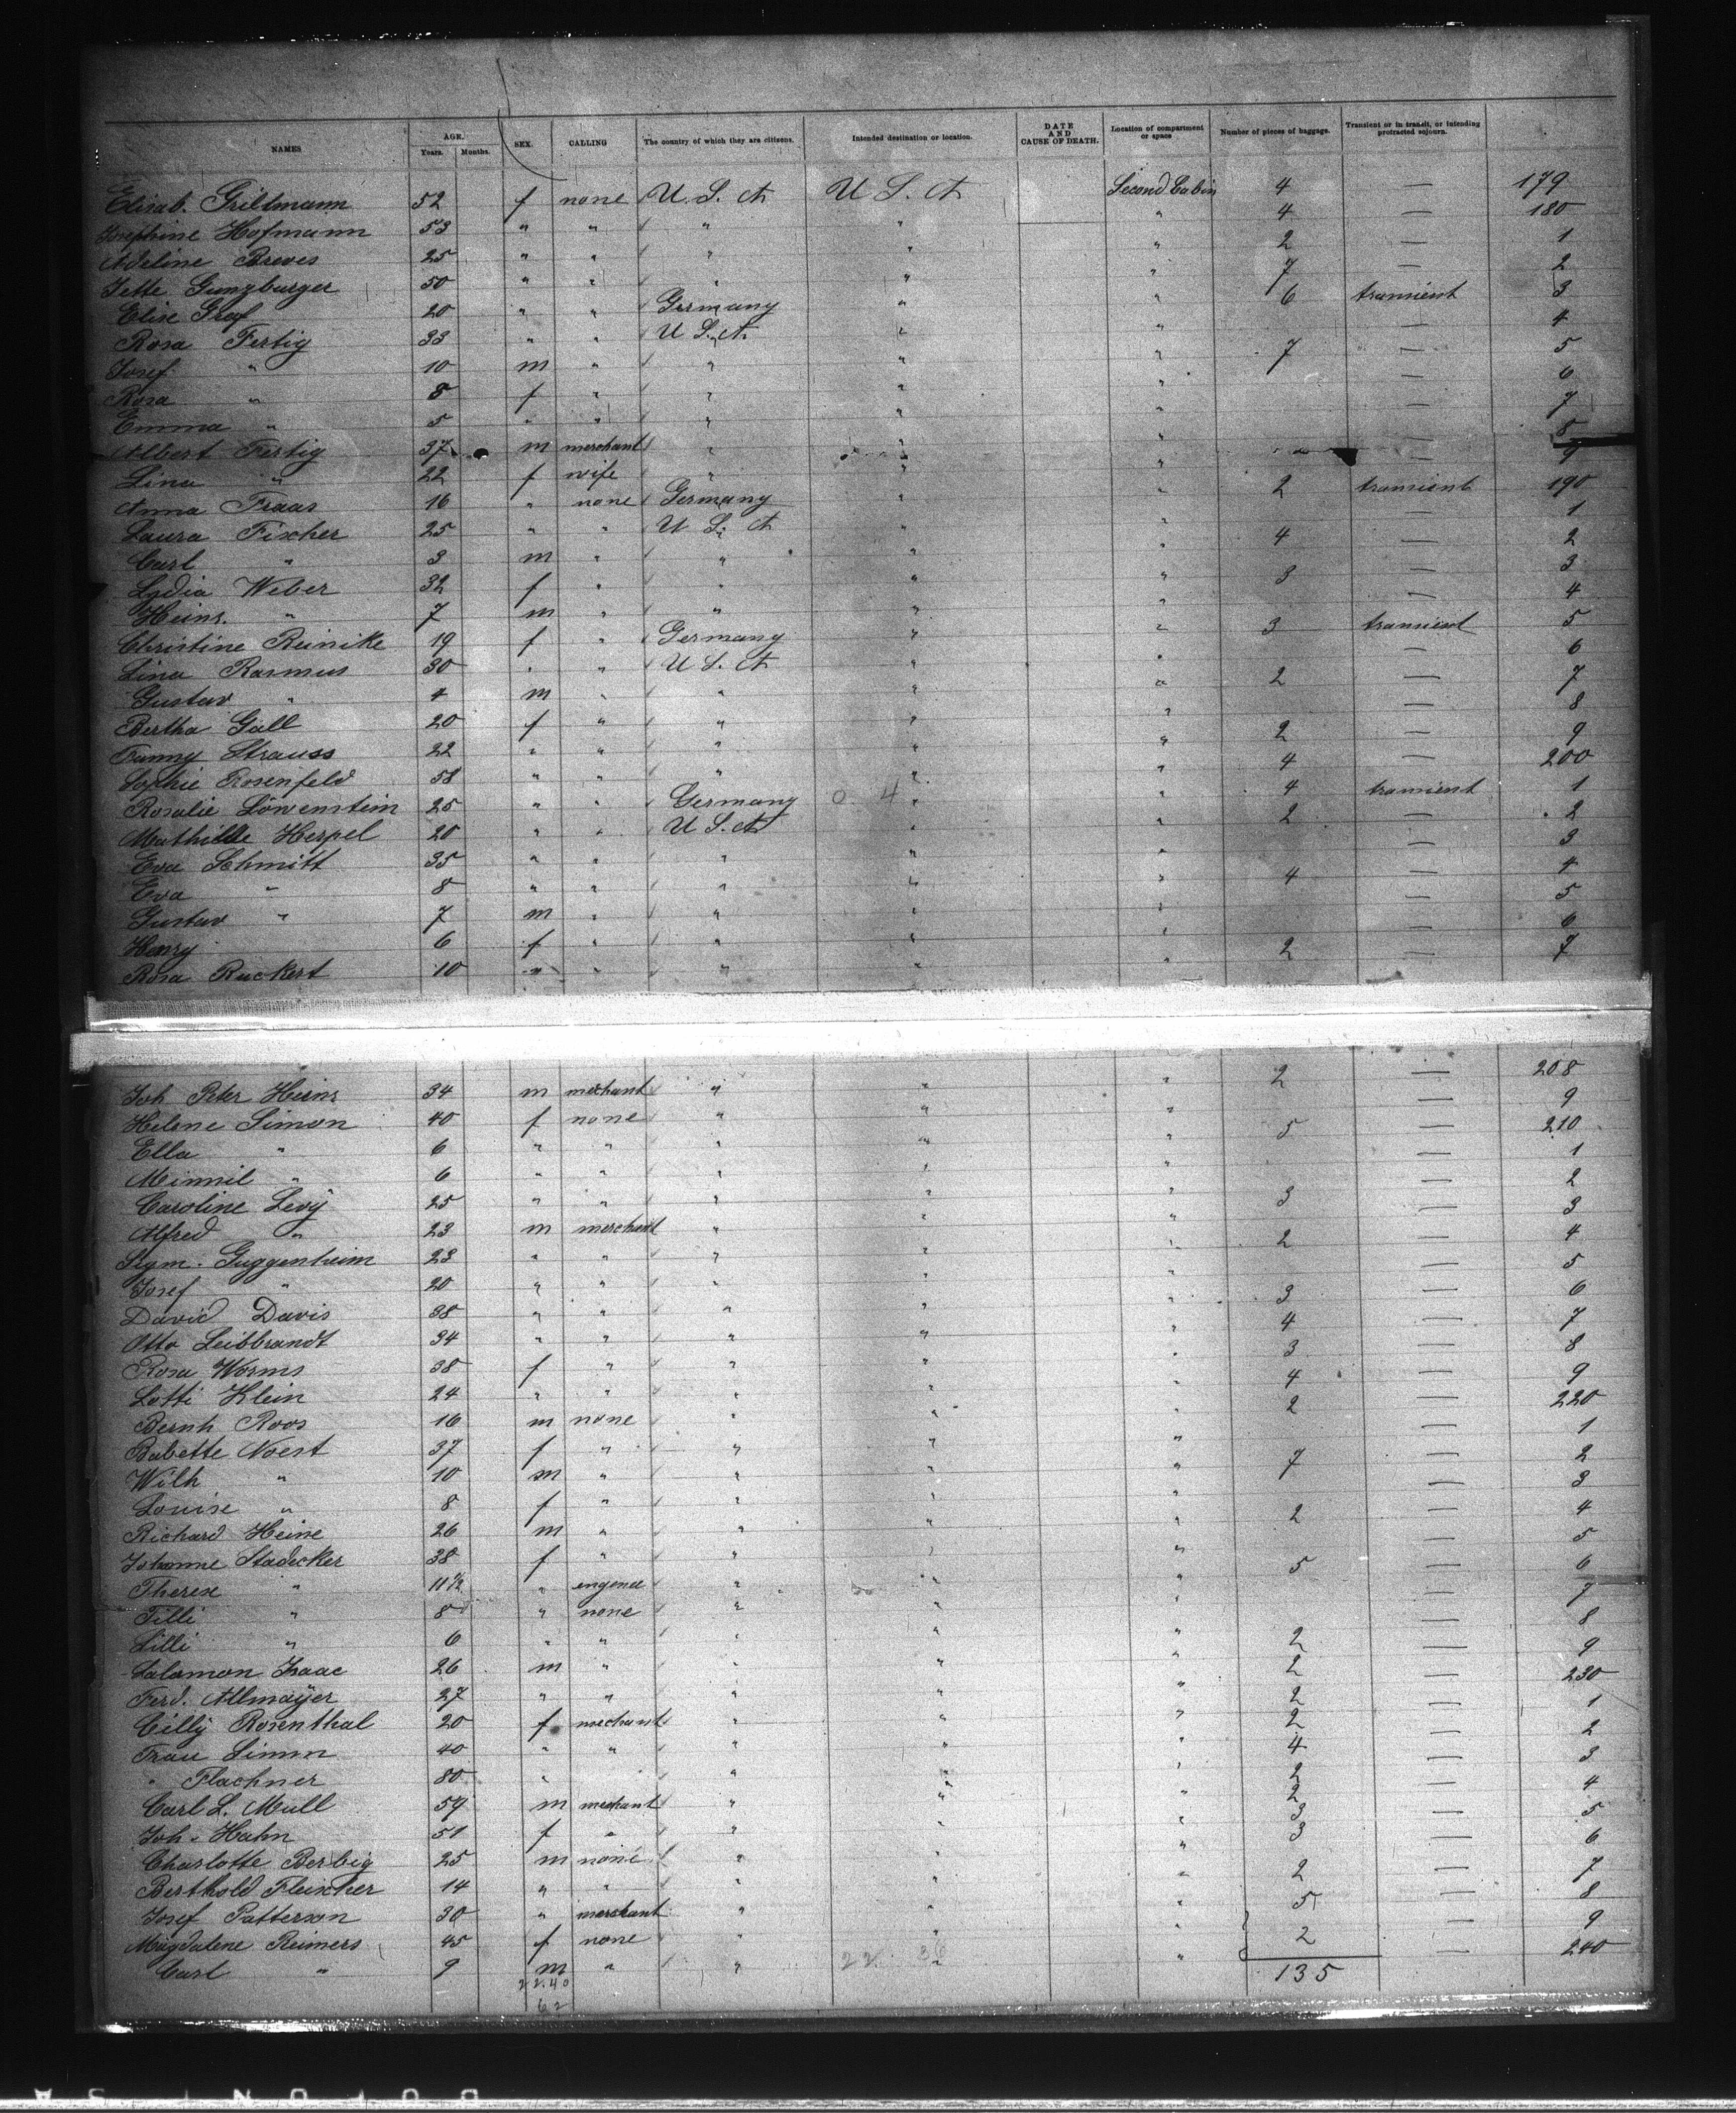 NAMES AGE. Years. Months. SEX. CALLING The country of which they are citizens. Intended destination or location. DATE AND CAUSE OF DEATH. Location of compartment or space Number of pieces of baggage. Transient or in transit, or intending protracted sojourn.
Elisab. Griltmann 52 f none U. S. A U S. A Second Cabin 4 — 179
Josephine Hofmann 53 " " " " " 4 — 180
Adeline Breves 25 " " " " " 2 — 1
Jette Gunzburger 50 " " " " " 7 — 2
Elise Graf 20 " " Germany " " 6 transient 3
Rosa Fertig 33 " " U S. A. " " — 4
Josef " 10 m " " " " 7 — 5
Rosa " 8 f " " " " — 6
Emma " 5 " " " " " — 7
Albert Fertig 37 m merchant " " " — 8
Lina " 22 f wife " " " — 9
Anna Fraas 16 " none Germany " " 2 transient 190
Laura Fischer 25 " " U S. A " " — 1
Carl " 3 m " " " " 4 — 2
Lydia Weber 32 f " " " " — 3
Heinr. " 7 m " " " " 3 — 4
Christine Reinike 19 f " Germany " " 3 transient 5
Lina Rasmus 30 " " U S. A " " — 6
Gustav " 4 m " " " " 2 — 7
Bertha Gall 20 f " " " " — 8
Fanny Strauss 22 " " " " " 2 — 9
Sophie Rosenfeld 58 " " " " " 4 — 200
Rosalie Löwenstein 25 " " Germany 0 4 " " 4 transient 1
Mathilde Herpel 20 " " U S. A " " 2 — 2
Eva Schmitt 35 " " " " " — 3
Eva " 8 " " " " " 4 — 4
Gustav " 7 m " " " " — 5
Henry 6 f " " " " — 6
Rosa Ruckert 10 " " " " " 2 — 7
Joh Peter Heins 34 m mechant " " " 2 — 208
Helene Simon 40 f none " " " — 9
Ella " 6 " " " " " 5 — 210
Minnil " 6 " " " " " — 1
Caroline Levÿ 25 " " " " " 3 — 2
Alfred " 23 m merchant " " " — 3
Sigm. Guggenheim 23 " " " " " 2 — 4
Josef " 20 " " " " " — 5
David Davis 38 " " " " " 3 — 6
Otto Leibbrandt 34 " " " " " 4 — 7
Rosa Worms 38 f " " " " 3 — 8
Lotti Klein 24 " " " " " 4 — 9
Bernh Roos 16 m none " " " 2 — 220
Babette Noest 37 f " " " " — 1
Wilh " 10 m " " " " 7 — 2
Louise " 8 f " " " " — 3
Richard Heine 26 m " " " " 2 — 4
Johanne Stadecker 38 f " " " " — 5
Therese " 11 1/2 " " " " 5 — 6
Tilli " 8 " none " " " — 7
Lilli " 6 " " " " " — 8
Salamon Isaac 26 m " " " " 2 — 9
Ferd. Allmaÿer 27 " " " " " 2 — 230
Cilly Rosenthal 20 f mechant " " " 2 — 1
Frau Simon 40 " " " " " 2 — 2
" Flachner 80 " " " " 4 — 3
Carl L. Mull 59 m mechant " " " 2 — 4
Joh. Hahn 51 f " " " " 2 — 5
Charlotte Berbig 25 m none " " " 3 — 6
Berthold Fleischer 14 " " " " " 3 — 7
Josef Patterson 30 " merchant " " " 2 — 8
Magdalene Reimers 45 f none " " " 5 — 9
Carl " 9 m " " 22 36 " " 2 — 240
22.40 135
62